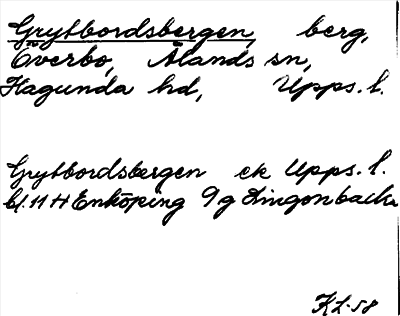 Grytbordsbergen, berg,
Överbo, Ålands sn,
Hagunda hd, Upps. l.
Grytbordsbergen ek Upps. l.
bl. 11 H Enköping 9g Lingonbacka
KL-58